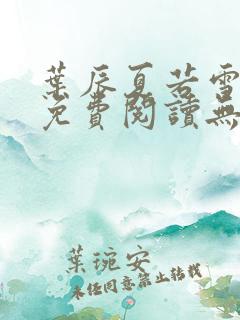 葉辰夏若雪
免費閱讀無
葉琬安
未经同意禁止转载